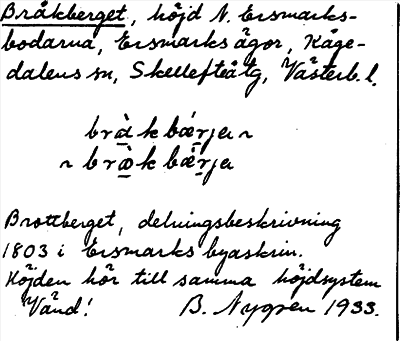 Bråkberget, höjd N. Ersmarks-
bodarna, Ersmarks ägor, Kåge-
dalens sn, Skellefteå tg, Västerb. l.
bràkbǽrja ~
~ brækbǽrja
Brottberget, delningsbeskrivning
1803 i Ersmarks byaskrin.
Höjden hör till samma höjdsystem
Vänd! B. Nygren 1933.